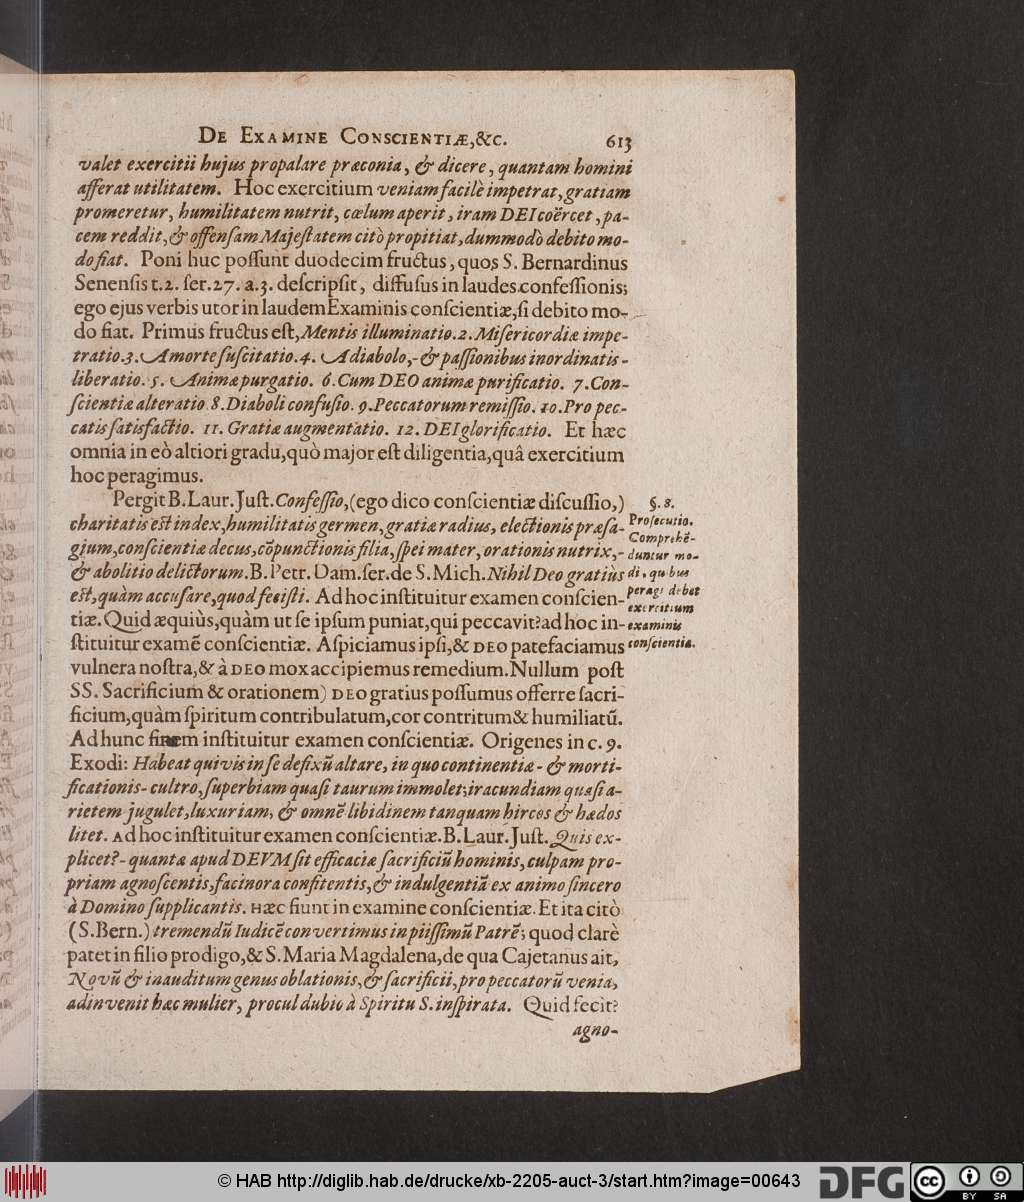 DE EXAMINE CONSCIENTIÆ,&c. 613
valet exercitii hujus propalare præconia, & dicere, quantam homini
afferat utilitatem. Hoc exercitium veniam facilè impetrat, gratiam
promeretur, humilitatem nutrit, cælum aperit, iram DEI coërcet, pa-
cem reddit, & offenſam Majeſtatem citò propitiat, dummodò debito mo-
do fiat. Poni huc poſſunt duodecim fructus, quos S. Bernardinus
Senenſis t.2. ſer.27. a.3. deſcripſit, diffuſus in laudes confeſſionis;
ego ejus verbis utor in laudem Examinis conſcientiæ, ſi debito mo-
do fiat. Primus fructus eſt, Mentis illuminatio. 2. Miſericordiæ impe-
tratio. 3. A morte ſuſcitatio. 4. A diabolo,- & paſſionibus inordinatis-
liberatio. 5. Animæ purgatio. 6. Cum DEO animæ purificatio. 7. Con-
ſcientiæ alteratio. 8. Diaboli confuſio. 9. Peccatorum remiſſio. 10. Pro pec-
catis ſatisfactio. 11. Gratiæ augmentatio. 12. DEI glorificatio. Et hæc
omnia in eò altiori gradu, quò major eſt diligentia, quâ exercitium
hoc peragimus.
Pergit B. Laur. Juſt. Confeſſio, (ego dico conſcientiæ diſcuſſio,)
charitatis eſt index, humilitatis germen, gratiæ radius, electionis præſa-
gium, conſcientiæ decus, cõpunctionis filia, ſpei mater, orationis nutrix,-
& abolitio delictorum. B. Petr. Dam. ſer. de S. Mich. Nihil Deo gratiùs
eſt, quàm accuſare, quod feciſti. Ad hoc inſtituitur examen conſcien-
tiæ. Quid æquiùs, quàm ut ſe ipſum puniat, qui peccavit? ad hoc in-
ſtituitur examẽ conſcientiæ. Aſpiciamus ipſi, & DEO patefaciamus
vulnera noſtra, & à DEO mox accipiemus remedium. Nullum poſt
SS. Sacrificium & orationem) DEO gratius poſſumus offerre ſacri-
ficium, quàm ſpiritum contribulatum, cor contritum & humiliatũ.
Ad hunc finem inſtituitur examen conſcientiæ. Origenes in c. 9.
Exodi: Habeat quivis in ſe defixũ altare, in quo continentiæ- & morti-
ficationis- cultro, ſuperbiam quaſi taurum immolet; iracundiam quaſi a-
rietem jugulet, luxuriam, & omnẽ libidinem tanquam hircos & hædos
litet. Ad hoc inſtituitur examen conſcientiæ. B. Laur. Juſt. Quis ex-
plicet?- quantæ apud DEVM ſit efficaciæ ſacrificiũ hominis, culpam pro-
priam agnoſcentis, facinora confitentis, & indulgentiã ex animo ſincero
à Domino ſupplicantis. Hæc fiunt in examine conſcientiæ. Et ita citò
(S. Bern.) tremendũ Iudicẽ convertimus in piiſſimũ Patrẽ; quod clarè
patet in filio prodigo, & S. Maria Magdalena, de qua Cajetanus ait,
Novũ & inauditum genus oblationis, & ſacrificii, pro peccatorũ venia,
adinvenit hæc mulier, procul dubio à Spiritu S. inſpirata. Quid fecit?
agno-
§. 8.
Proſecutio.
Comprehẽ-
duntur mo-
di, quibus
peragi debet
exercitium
examinis
conſcientiæ.
© HAB http://diglib.hab.de/drucke/xb-2205-auct-3/start.htm?image=00643
DFG
cc
BY SA